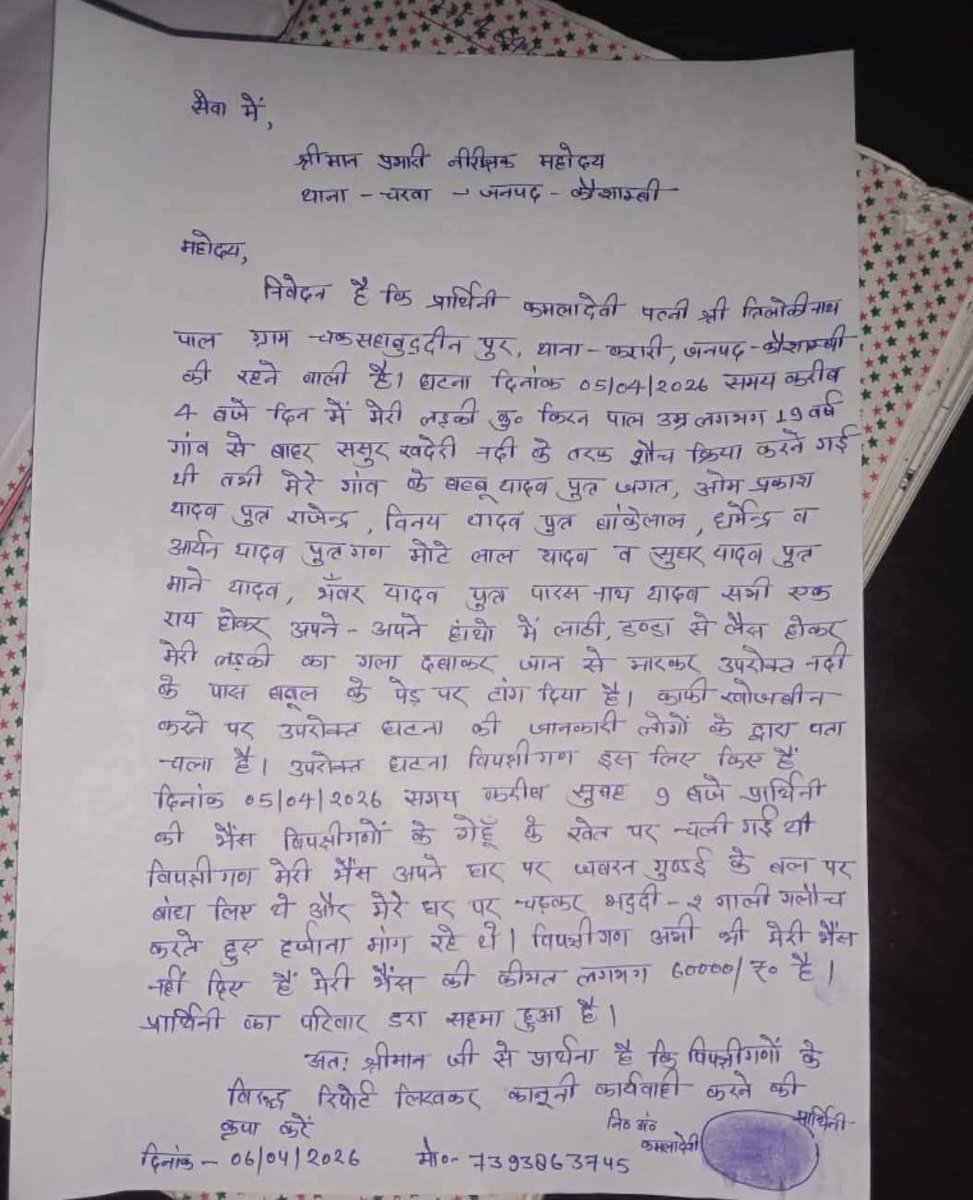 सेवा में,
श्रीमान प्रभारी नीरीक्षक महोदय
थाना - चरवा - जनपद - कौशाम्बी
महोदय,
निवेदन है कि प्रार्थिनी कमलादेवी पत्नी श्री त्रिलोकीनाथ
पाल ग्राम - चकसहाबुद्दीन पुर, थाना - करारी, जनपद - कौशाम्बी
की रहने वाली है। घटना दिनांक 05/04/2026 समय करीब
4 बजे दिन में मेरी लड़की कु० किरन पाल उम्र लगभग 19 वर्ष
गांव से बाहर ससुर खदेरी नदी के तरफ शौच क्रिया करने गई
थी तभी मेरे गांव के यादव पुत्र जगत, ओम प्रकाश
यादव पुत्र राजेन्द्र, विनय यादव पुत्र बांकेलाल, धर्मेन्द्र व
आर्यन यादव पुत्रगण मोटे लाल यादव व सुघर यादव पुत्र
माने यादव, भँवर यादव पुत्र पारस नाथ यादव सभी एक
राय होकर अपने - अपने हांथो में लाठी, डण्डा से लैस होकर
मेरी लड़की का गला दबाकर जान से मारकर उपरोक्त नदी
के पास बबूल के पेड़ पर टांग दिया है। काफी खोजबीन
करने पर उपरोक्त घटना की जानकारी लोगों के द्वारा पता
चला है। उपरोक्त घटना विपक्षीगण इस लिए किए हैं
दिनांक 05/04/2026 समय करीब सुबह 9 बजे प्रार्थिनी
की भैंस विपक्षीगणों के गेहूँ के खेत पर चली गई थी
विपक्षीगण मेरी भैंस अपने घर पर जबरन गुण्डई के बल पर
बांध लिए थे और मेरे घर पर चढ़कर भद्दी - २ गाली गलौच
करते हुए हर्जाना मांग रहे थे। विपक्षीगण अभी भी मेरी भैंस
नहीं दिए हैं मेरी भैंस की कीमत लगभग 60000/ रु० है।
प्रार्थिनी का परिवार डरा सहमा हुआ है।
अतः श्रीमान जी से प्रार्थना है कि विपक्षीगणों के
विरूद्ध रिपोर्ट लिखकर कानूनी कार्यवाही करने की
कृपा करें
नि० अं० प्रार्थिनी -
कमलादेवी
दिनांक - 06/04/2026 मो०- 7393863745